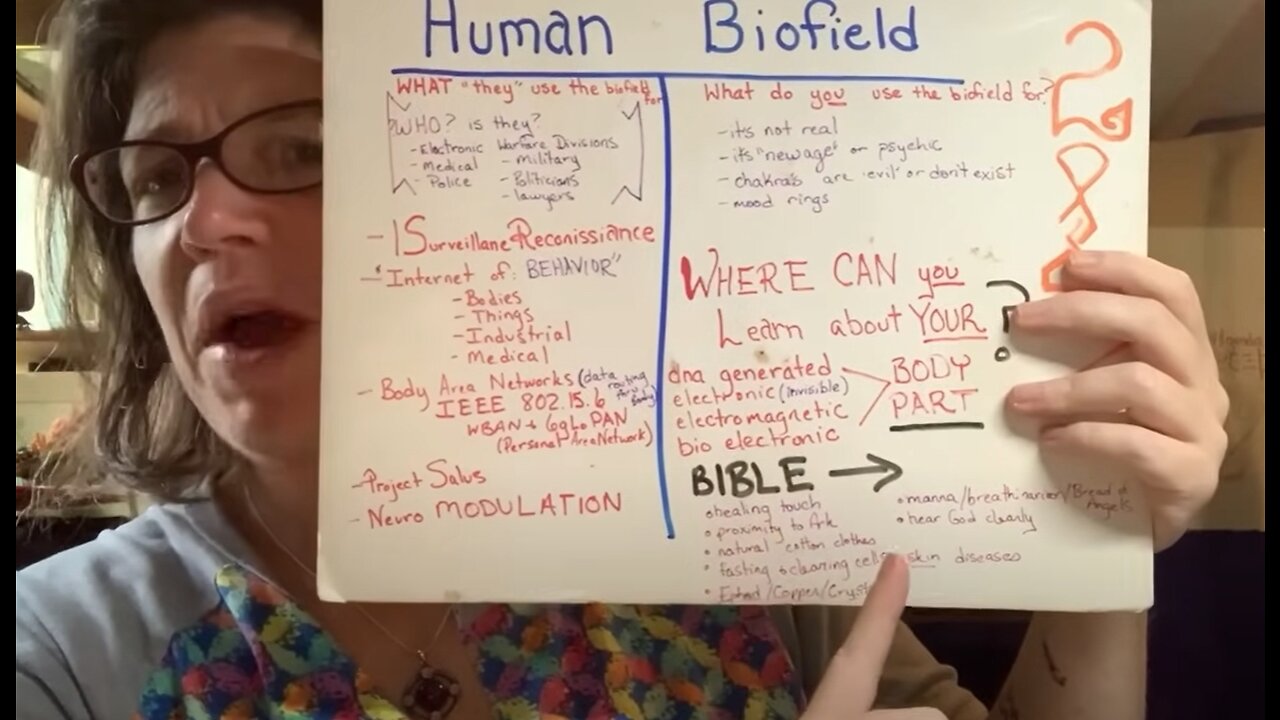 Human Biofield
WHAT "they" use the biofield for
WHO? is they?
- Electronic Warfare Divisions
- Medical - military
- Police - Politicians
- lawyers
- ISurveillane Reconissiance
- "Internet of: BEHAVIOR"
- Bodies
- Things
- Industrial
- Medical
- Body Area Networks (data routing thru Body)
IEEE 802.15.6
WBAN + 6gLoPAN
(Personal Area Network)
- Project Salus
- Neuro MODULATION
What do you use the biofield for?
- it's not real
- it's "newage" or psychic
- chakra's are 'evil' or don't exist
- mood rings
WHERE CAN you
Learn about YOUR ?
dna generated
electronic (invisible)
electromagnetic
bio electronic
BODY
PART
BIBLE →
• healing touch
• proximity to Ark
• natural cotton clothes
• fasting + cleaning cells skin diseases
• Ephod/Copper/Cryst
• manna/breath /Bread of Angels
• hear God clearly